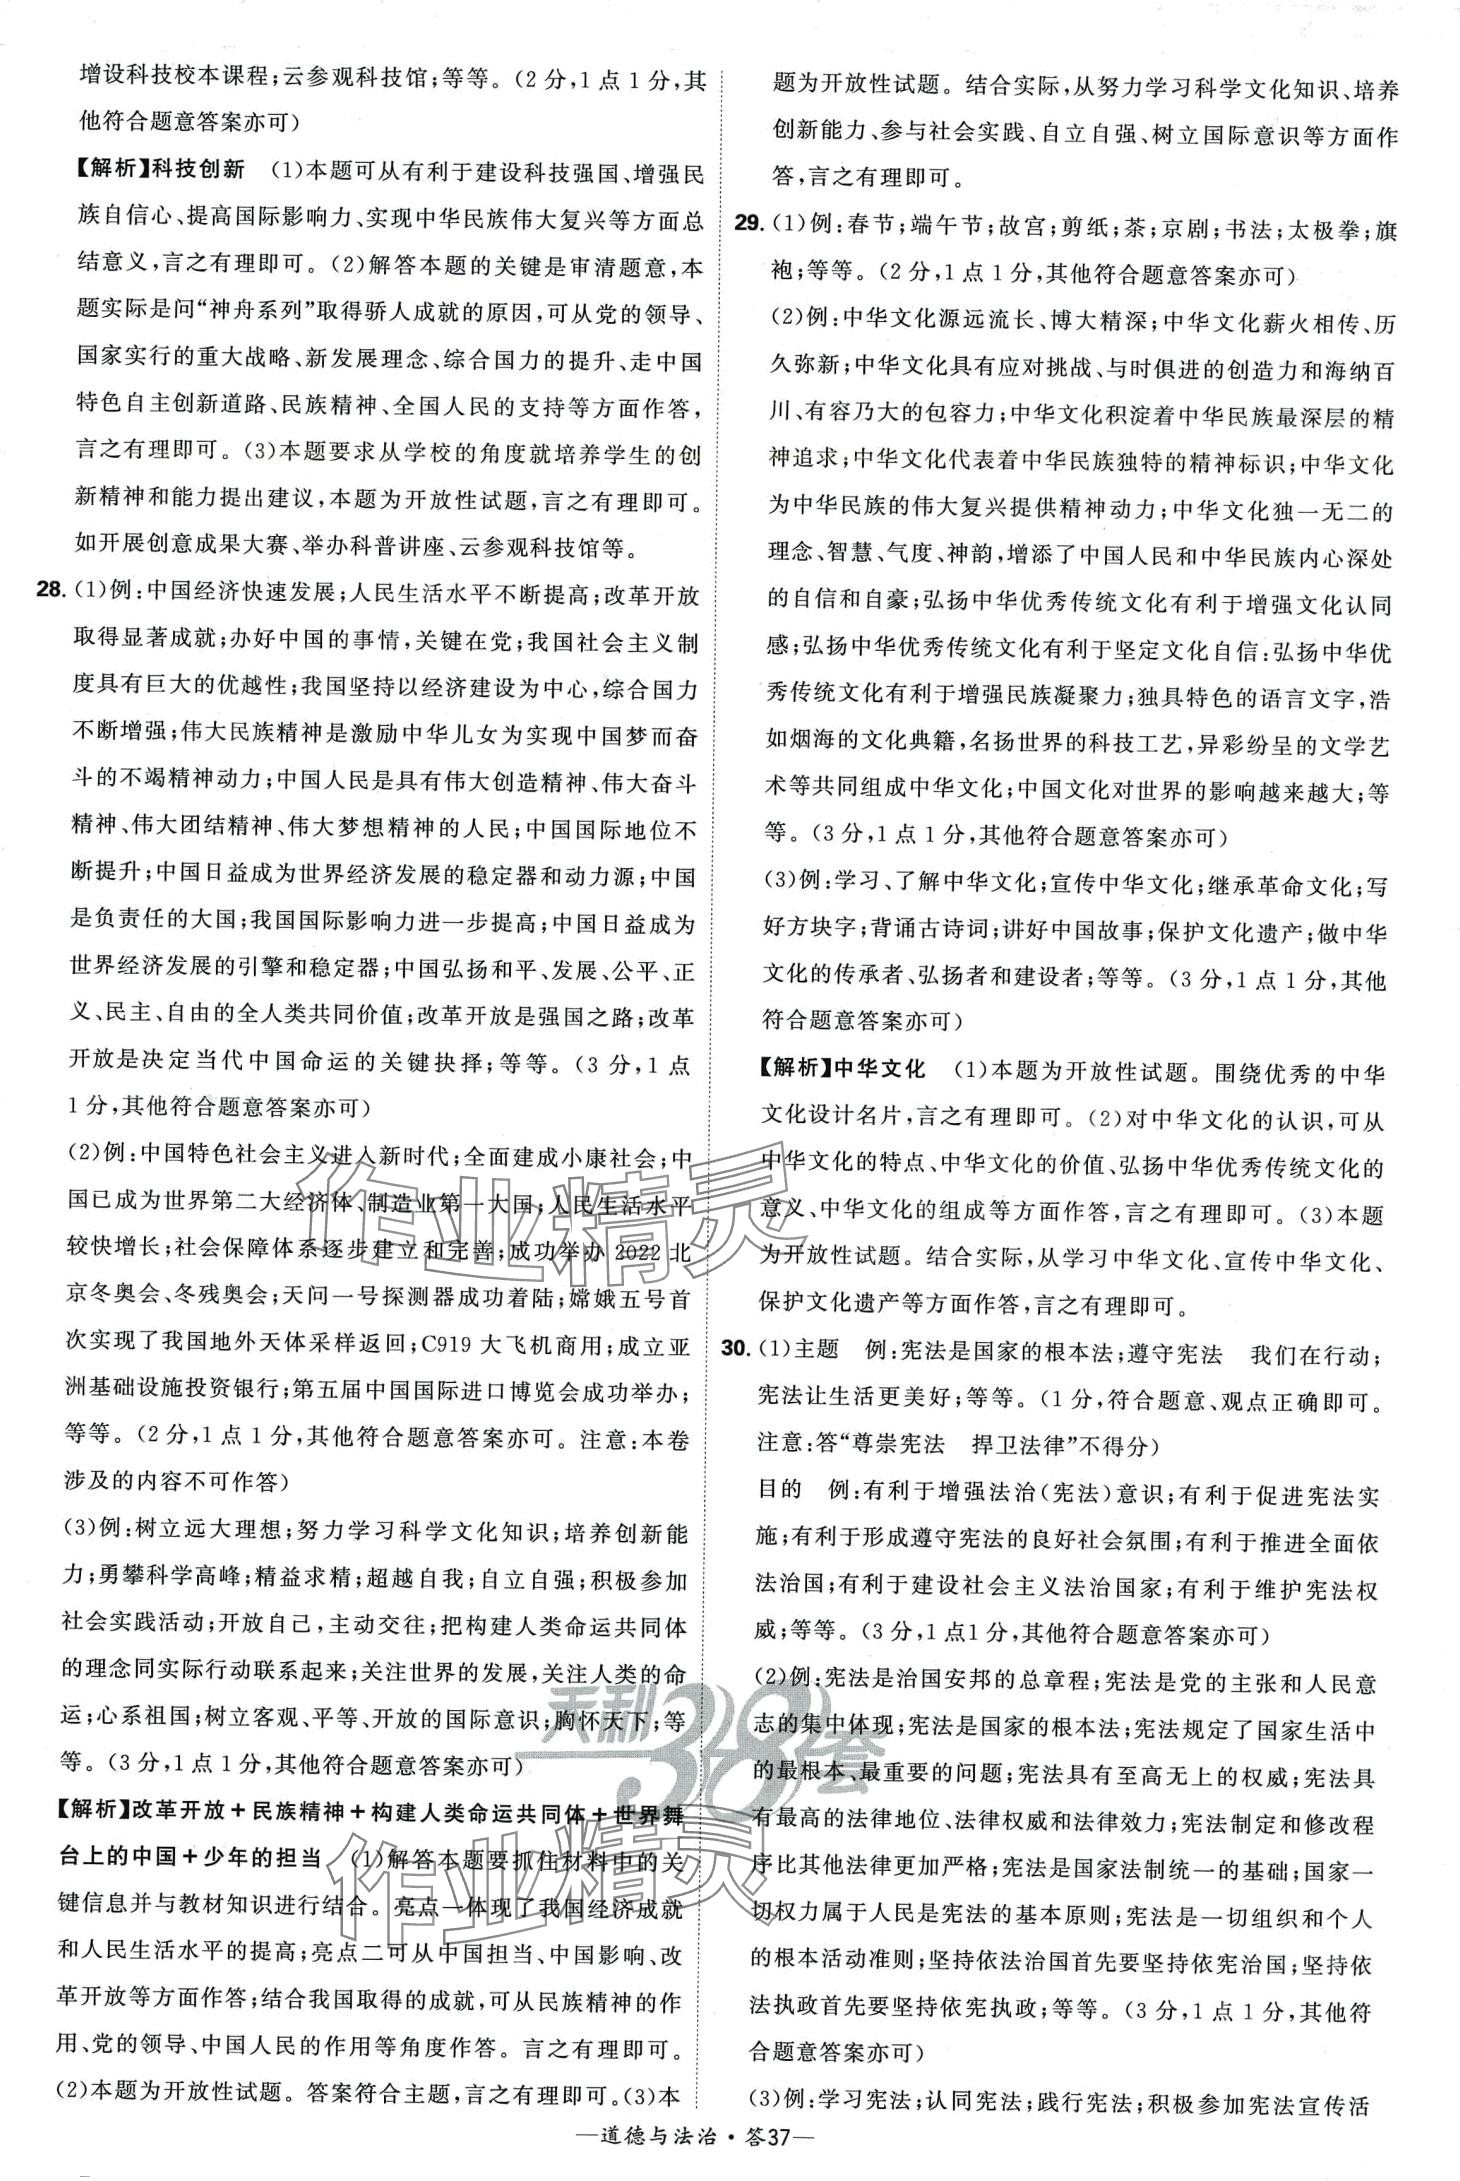 增设科技校本课程;云参观科技馆;等等。(2分,1点1分,其
他符合题意答案亦可)
【解析】科技创新 (1)本题可从有利于建设科技强国、增强民
族自信心、提高国际影响力、实现中华民族伟大复兴等方面总
结意义,言之有理即可。(2)解答本题的关键是审清题意,本
题实际是问“神舟系列”取得骄人成就的原因,可从党的领导、
国家实行的重大战略、新发展理念、综合国力的提升、走中国
特色自主创新道路、民族精神、全国人民的支持等方面作答,
言之有理即可。(3)本题要求从学校的角度就培养学生的创
新精神和能力提出建议,本题为开放性试题,言之有理即可。
如开展创意成果大赛、举办科普讲座、云参观科技馆等。
28. (1)例:中国经济快速发展;人民生活水平不断提高;改革开放
取得显著成就;办好中国的事情,关键在党;我国社会主义制
度具有巨大的优越性;我国坚持以经济建设为中心,综合国力
不断增强;伟大民族精神是激励中华儿女为实现中国梦而奋
斗的不竭精神动力;中国人民是具有伟大创造精神、伟大奋斗
精神、伟大团结精神、伟大梦想精神的人民;中国国际地位不
断提升;中国日益成为世界经济发展的稳定器和动力源;中国
是负责任的大国;我国国际影响力进一步提高;中国日益成为
世界经济发展的引擎和稳定器;中国弘扬和平、发展、公平、正
义、民主、自由的全人类共同价值;改革开放是强国之路;改革
开放是决定当代中国命运的关键抉择;等等。(3分,1点
1分,其他符合题意答案亦可)
(2)例:中国特色社会主义进入新时代;全面建成小康社会;中
国已成为世界第二大经济体、制造业第一大国;人民生活水平
较快增长;社会保障体系逐步建立和完善;成功举办2022北
京冬奥会、冬残奥会;天问一号探测器成功着陆;嫦娥五号首
次实现了我国地外天体采样返回;C919大飞机商用;成立亚
洲基础设施投资银行;第五届中国国际进口博览会成功举办;
等等。(2分,1点1分,其他符合题意答案亦可。注意:本卷
涉及的内容不可作答)
(3)例:树立远大理想;努力学习科学文化知识;培养创新能
力;勇攀科学高峰;精益求精;超越自我;自立自强;积极参加
社会实践活动;开放自己,主动交往;把构建人类命运共同体
的理念同实际行动联系起来;关注世界的发展,关注人类的命
运;心系祖国;树立客观、平等、开放的国际意识;胸怀天下;等
等。(3分,1点1分,其他符合题意答案亦可)
【解析】改革开放+民族精神+构建人类命运共同体+世界舞
台上的中国+少年的担当 (1)解答本题要抓住材料中的关
键信息并与教材知识进行结合。亮点一体现了我国经济成就
和人民生活水平的提高;亮点二可从中国担当、中国影响、改
革开放等方面作答;结合我国取得的成就,可从民族精神的作
用、党的领导、中国人民的作用等角度作答。言之有理即可。
(2)本题为开放性试题。答案符合主题,言之有理即可。(3)本
题为开放性试题。结合实际,从努力学习科学文化知识、培养
创新能力、参与社会实践、自立自强、树立国际意识等方面作
答,言之有理即可。
29. (1)例:春节;端午节;故宫;剪纸;茶;京剧;书法;太极拳;旗
袍;等等。(2分,1点1分,其他符合题意答案亦可)
(2)例:中华文化源远流长、博大精深;中华文化薪火相传、历
久弥新;中华文化具有应对挑战、与时俱进的创造力和海纳百
川、有容乃大的包容力;中华文化积淀着中华民族最深层的精
神追求;中华文化代表着中华民族独特的精神标识;中华文化
为中华民族的伟大复兴提供精神动力;中华文化独一无二的
理念、智慧、气度、神韵,增添了中国人民和中华民族内心深处
的自信和自豪;弘扬中华优秀传统文化有利于增强文化认同
感;弘扬中华优秀传统文化有利于坚定文化自信:弘扬中华优
秀传统文化有利于增强民族凝聚力;独具特色的语言文字,浩
如烟海的文化典籍,名扬世界的科技工艺,异彩纷呈的文学艺
术等共同组成中华文化;中国文化对世界的影响越来越大;等
等。(3分,1点1分,其他符合题意答案亦可)
(3)例:学习、了解中华文化;宣传中华文化;继承革命文化;写
好方块字;背诵古诗词;讲好中国故事;保护文化遗产;做中华
文化的传承者、弘扬者和建设者;等等。(3分,1点1分,其他
符合题意答案亦可)
【解析】中华文化 (1)本题为开放性试题。围绕优秀的中华
文化设计名片,言之有理即可。(2)对中华文化的认识,可从
中华文化的特点、中华文化的价值、弘扬中华优秀传统文化的
意义、中华文化的组成等方面作答,言之有理即可。(3)本题
为开放性试题。结合实际,从学习中华文化、宣传中华文化、
保护文化遗产等方面作答,言之有理即可。
30. (1)主题 例:宪法是国家的根本法;遵守宪法 我们在行动;
宪法让生活更美好;等等。(1分,符合题意、观点正确即可。
注意:答“尊崇宪法 捍卫法律”不得分)
目的 例:有利于增强法治(宪法)意识;有利于促进宪法实
施;有利于形成遵守宪法的良好社会氛围;有利于推进全面依
法治国;有利于建设社会主义法治国家;有利于维护宪法权
威;等等。(3分,1点1分,其他符合题意答案亦可)
(2)例:宪法是治国安邦的总章程;宪法是党的主张和人民意
志的集中体现;宪法是国家的根本法;宪法规定了国家生活中
的最根本、最重要的问题;宪法具有至高无上的权威;宪法具
有最高的法律地位、法律权威和法律效力;宪法制定和修改程
序比其他法律更加严格;宪法是国家法制统一的基础;国家一
切权力属于人民是宪法的基本原则;宪法是一切组织和个人
的根本活动准则;坚持依法治国首先要坚持依宪治国;坚持依
法执政首先要坚持依宪执政;等等。(3分,1点1分,其他符
合题意答案亦可)
(3)例:学习宪法;认同宪法;践行宪法;积极参加宪法宣传活
—道德与法治·答37—
作业精灵
天利38套
作业精灵